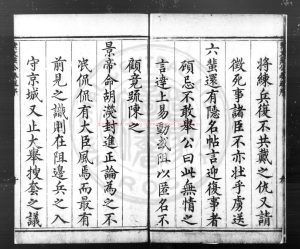 將練兵復不共戴之仇又請
微死事諸臣不亦壯乎虜送
六蜚還有隱名帖言迎復事者
碩忌不敢舉公曰此無情之
言達上易動試阻以匿名不
顧竟疏陳之
景帝命胡濙封進正論為之不
泯侃侃有大臣風焉而最有
前見之識則在阻邊兵之入
守京城又止大舉搜套之議